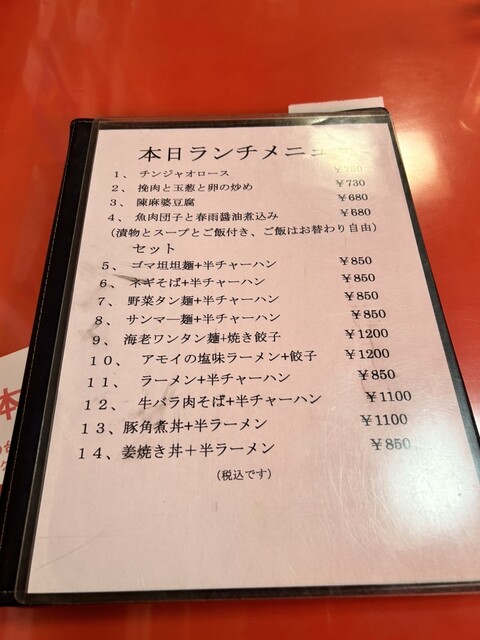 本日ランチメニュー
1、 チンジャオロース ¥750
2、 挽肉と玉葱と卵の炒め ¥730
3、 陳麻婆豆腐 ¥680
4、 魚肉団子と春雨醤油煮込み ¥680
(漬物とスープとご飯付き、ご飯はお替わり自由)
セット
5、 ゴマ坦坦麺+半チャーハン ¥850
6、 ネギそば+半チャーハン ¥850
7、 野菜タン麺+半チャーハン ¥850
8、 サンマー麺+半チャーハン ¥850
9、 海老ワンタン麺+焼き餃子 ¥1200
10、 アモイの塩味ラーメン+餃子 ¥1200
11、 ラーメン+半チャーハン ¥850
12、 牛バラ肉そば+半チャーハン ¥1100
13、豚角煮丼+半ラーメン ¥1100
14、姜焼き丼+半ラーメン ¥850
(税込です)
本